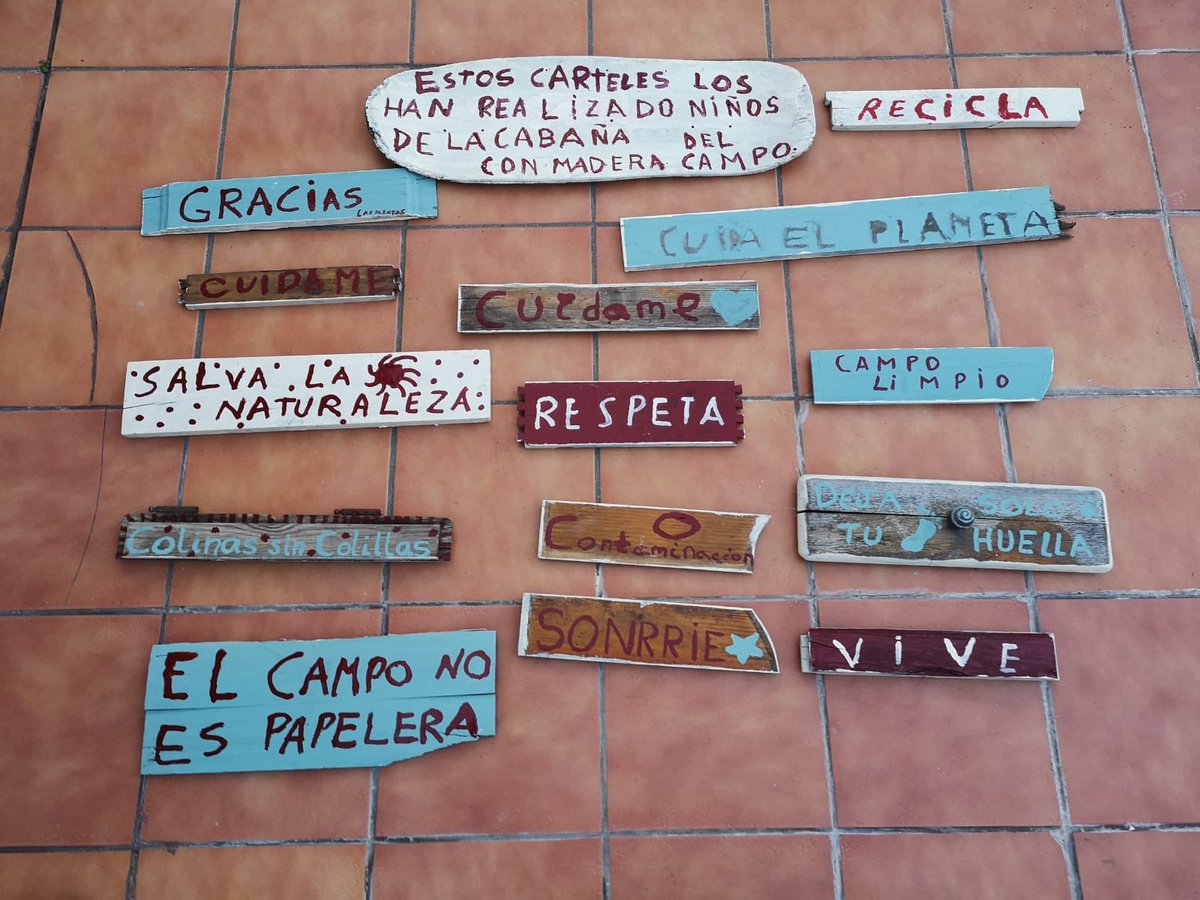 ESTOS CARTELES LOS
HAN REALIZADO NIÑOS
DE LA CABAÑA DEL
CON MADERA CAMPO.
RECICLA
GRACIAS
LAS PLANTAS
CUIDA EL PLANETA
CUIDAME
CUidame
SALVA LA
NATURALEZA
RESPETA
CAMPO
LiMPIO
Colinas sin Colillas
O
Contaminacion
DEJA SOLO
TU HUELLA
SONRRIE
ViVE
EL CAMPO NO
ES PAPELERA